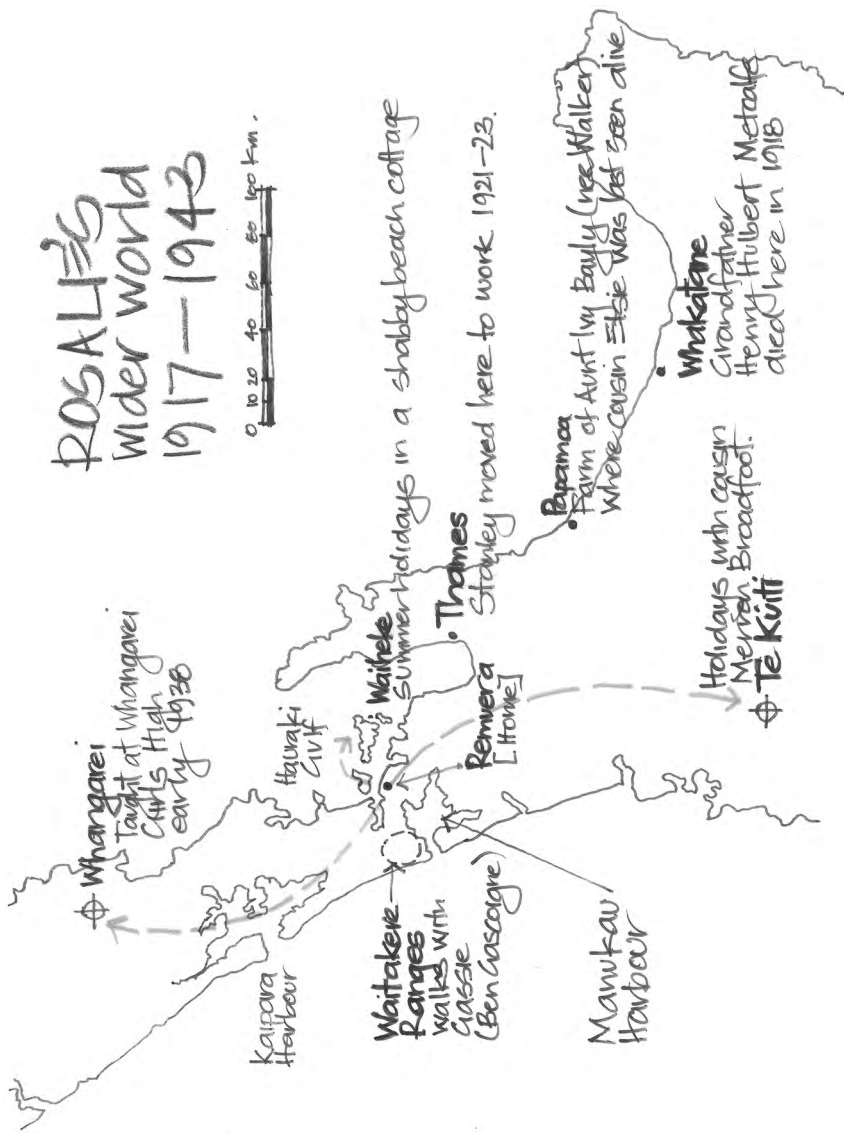 ROSALIE'S
Wider World
1917—1943
0 10 20 40 60 80 100 Km.
Whangarei
Taught at Whangarei
Girls High
early 1938
Kaipara
Harbour
Hauraki
Gulf
Waiheke
Summer holidays in a shabby beach cottage
Thames
Stanley moved here to work 1921-23.
Remuera
[Home]
Waitakere
Ranges
walks with
Gassie
(Ben Gascoigne)
Manukau
Harbour
Papamoa
Farm of Aunt Ivy Bayly (nee Walker)
where cousin Elsie was last seen alive
Whakatane
Grandfather
Henry Hulbert Metcalfe
died here in 1918
Holidays with cousin
Merion Broadfoot.
Te Kuiti